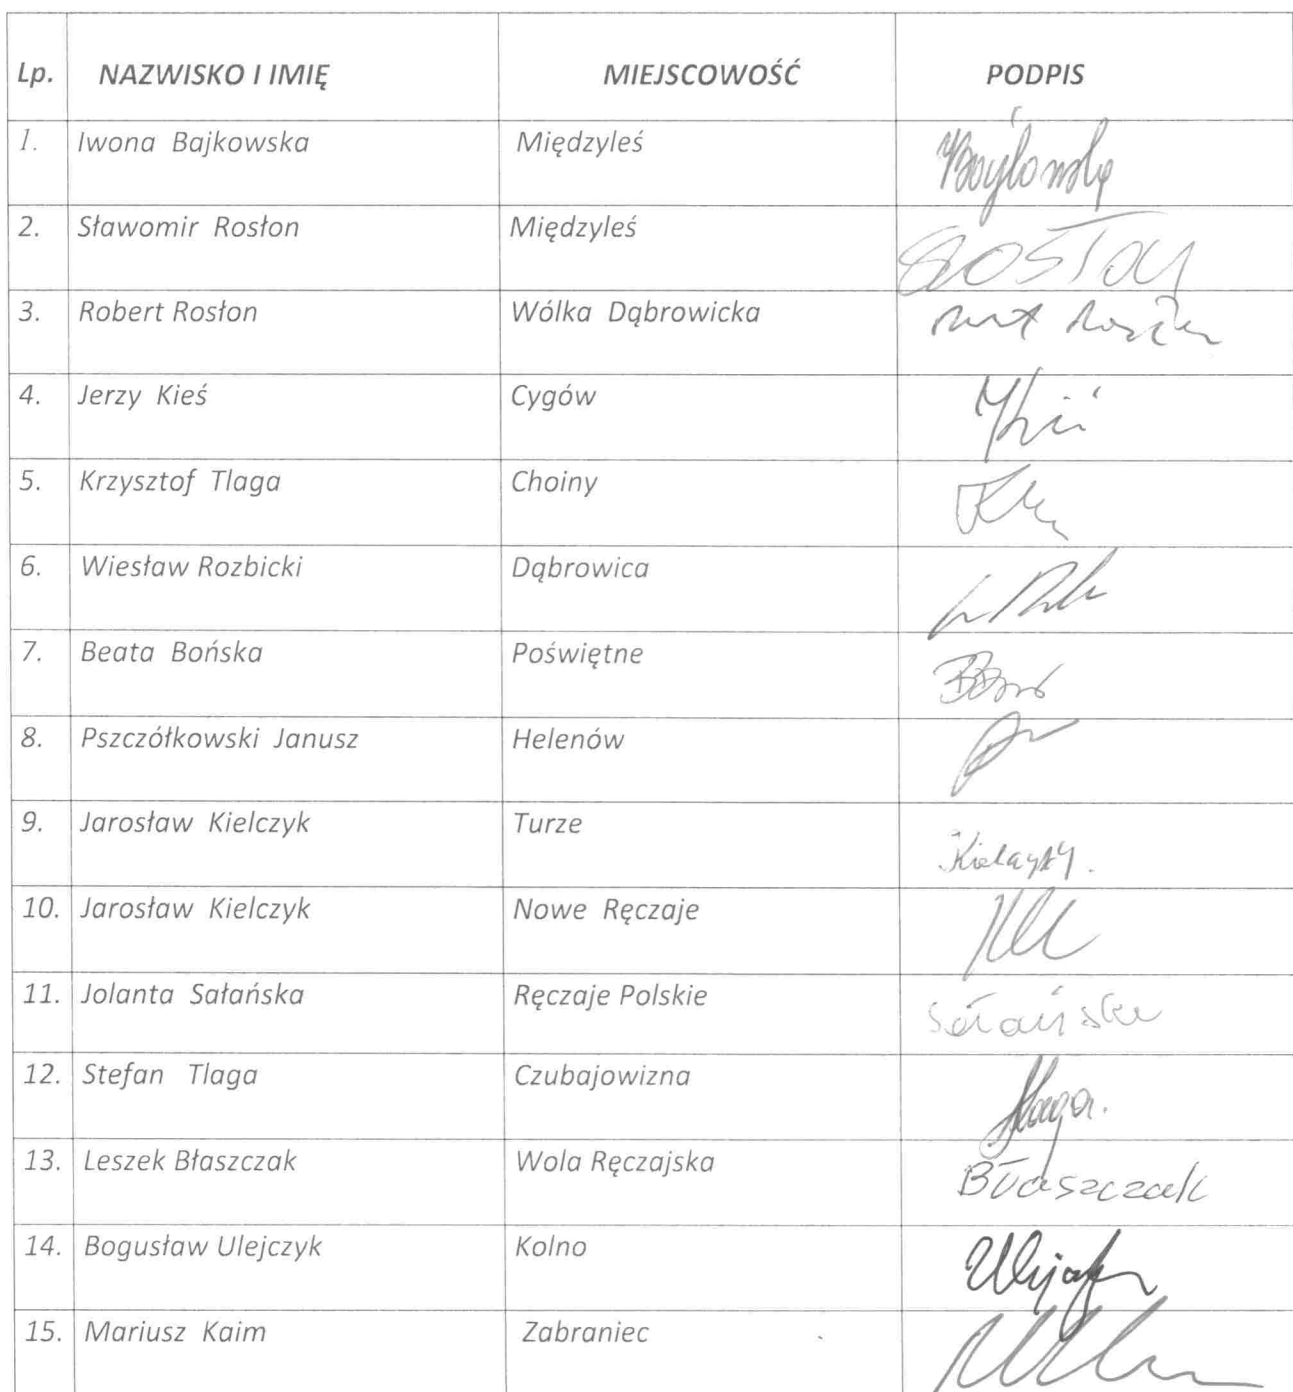 Lp. NAZWISKO I IMIĘ MIEJSCOWOŚĆ PODPIS
1. Iwona Bajkowska Międzyleś
2. Sławomir Rosłon Międzyleś
3. Robert Rosłon Wólka Dąbrowicka
4. Jerzy Kieś Cygów
5. Krzysztof Tlaga Choiny
6. Wiesław Rozbicki Dąbrowica
7. Beata Bońska Poświętne
8. Pszczółkowski Janusz Helenów
9. Jarosław Kielczyk Turze
10. Jarosław Kielczyk Nowe Ręczaje
11. Jolanta Sałańska Ręczaje Polskie Sałańska
12. Stefan Tlaga Czubajowizna
13. Leszek Błaszczak Wola Ręczajska Błaszczak
14. Bogusław Ulejczyk Kolno
15. Mariusz Kaim Zabraniec